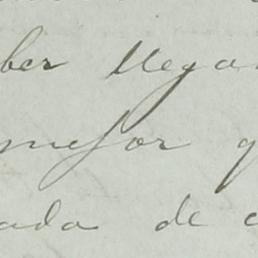 ber llega
mejor q
ada de c